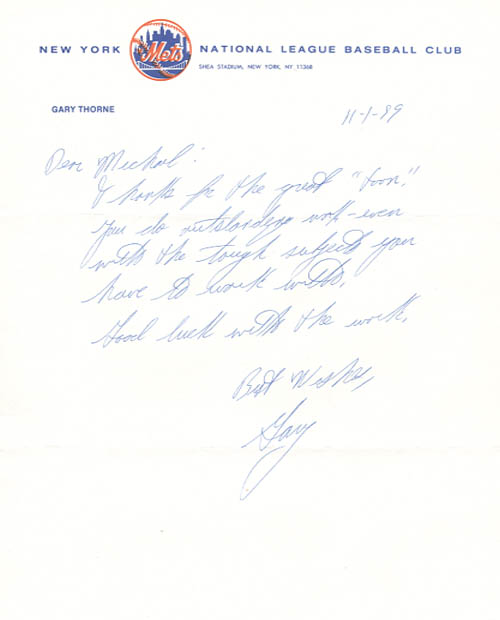 NEW YORK Mets NATIONAL LEAGUE BASEBALL CLUB
SHEA STADIUM, NEW YORK, NY 11368
GARY THORNE
11-1-89
Dear Michael:
Thanks for the great "toon."
You do outstanding work-even
with the tough subjects you
have to work with.
Good luck with the work.
Best Wishes,
Gary